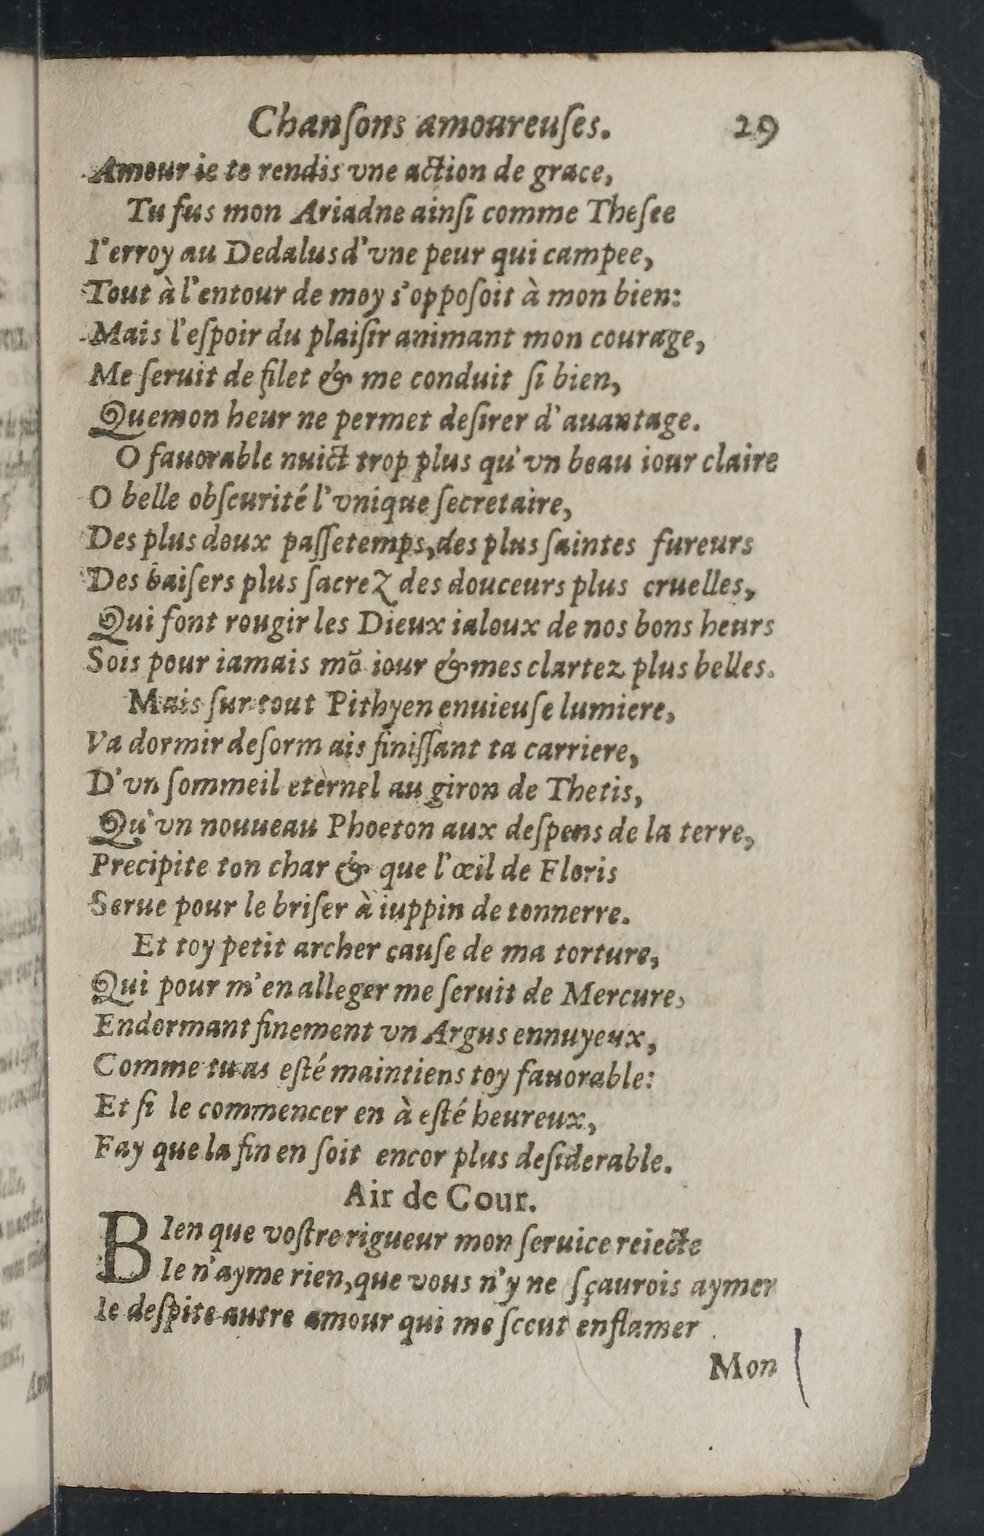 Chanſons amoureuſes. 29
Amour ie te rendis vne action de grace,
Tu fus mon Ariadne ainſi comme Theſee
I'erroy au Dedalus d'vne peur qui campee,
Tout à l'entour de moy s'oppoſoit à mon bien:
Mais l'eſpoir du plaiſir animant mon courage,
Me ſeruit de filet & me conduit ſi bien,
Quemon heur ne permet deſirer d'auantage.
O fauorable nuict trop plus qu'vn beau iour claire
O belle obſcurité l'vnique ſecretaire,
Des plus doux paſſetemps, des plus ſaintes fureurs
Des baiſers plus ſacrez des douceurs plus cruelles,
Qui font rougir les Dieux ialoux de nos bons heurs
Sois pour iamais mõ iour & mes clartez plus belles.
Mais ſur tout Pithyen enuieuſe lumiere,
Va dormir deſorm ais finiſſant ta carriere,
D'vn ſommeil eternel au giron de Thetis,
Qu'vn nouueau Phoeton aux deſpens de la terre,
Precipite ton char & que l'œil de Floris
Serue pour le briſer à iuppin de tonnerre.
Et toy petit archer cauſe de ma torture,
Qui pour m'en alleger me ſeruit de Mercure,
Endormant finement vn Argus ennuyeux,
Comme tu as eſté maintiens toy fauorable:
Et ſi le commencer en à eſté heureux,
Fay que la fin en ſoit encor plus deſiderable.
Air de Cour.
BIen que voſtre rigueur mon ſeruice reiecte
Ie n'ayme rien, que vous n'y ne ſçaurois aymer
Ie deſpite autre amour qui me ſceut enflamer
Mon